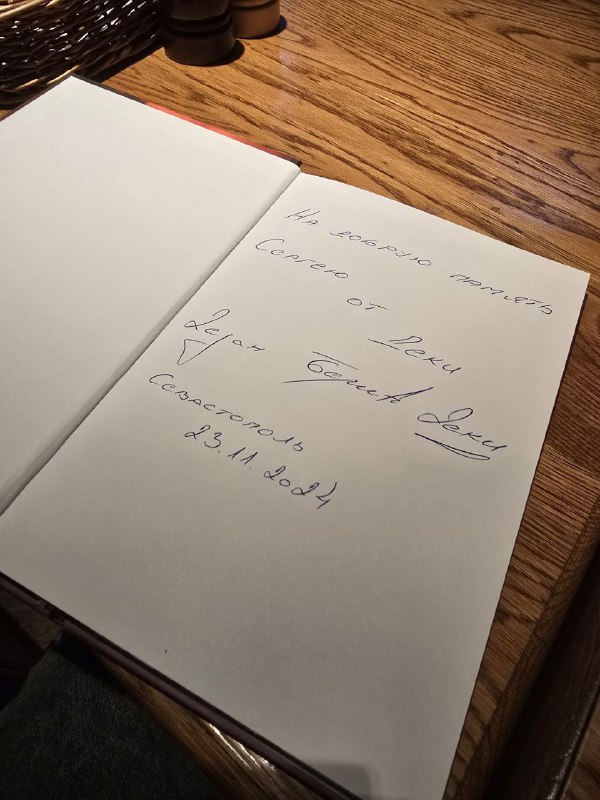 На добрую память
Сергею
от Деки
Дејан Берић Деки
Севастополь
23.11.2024